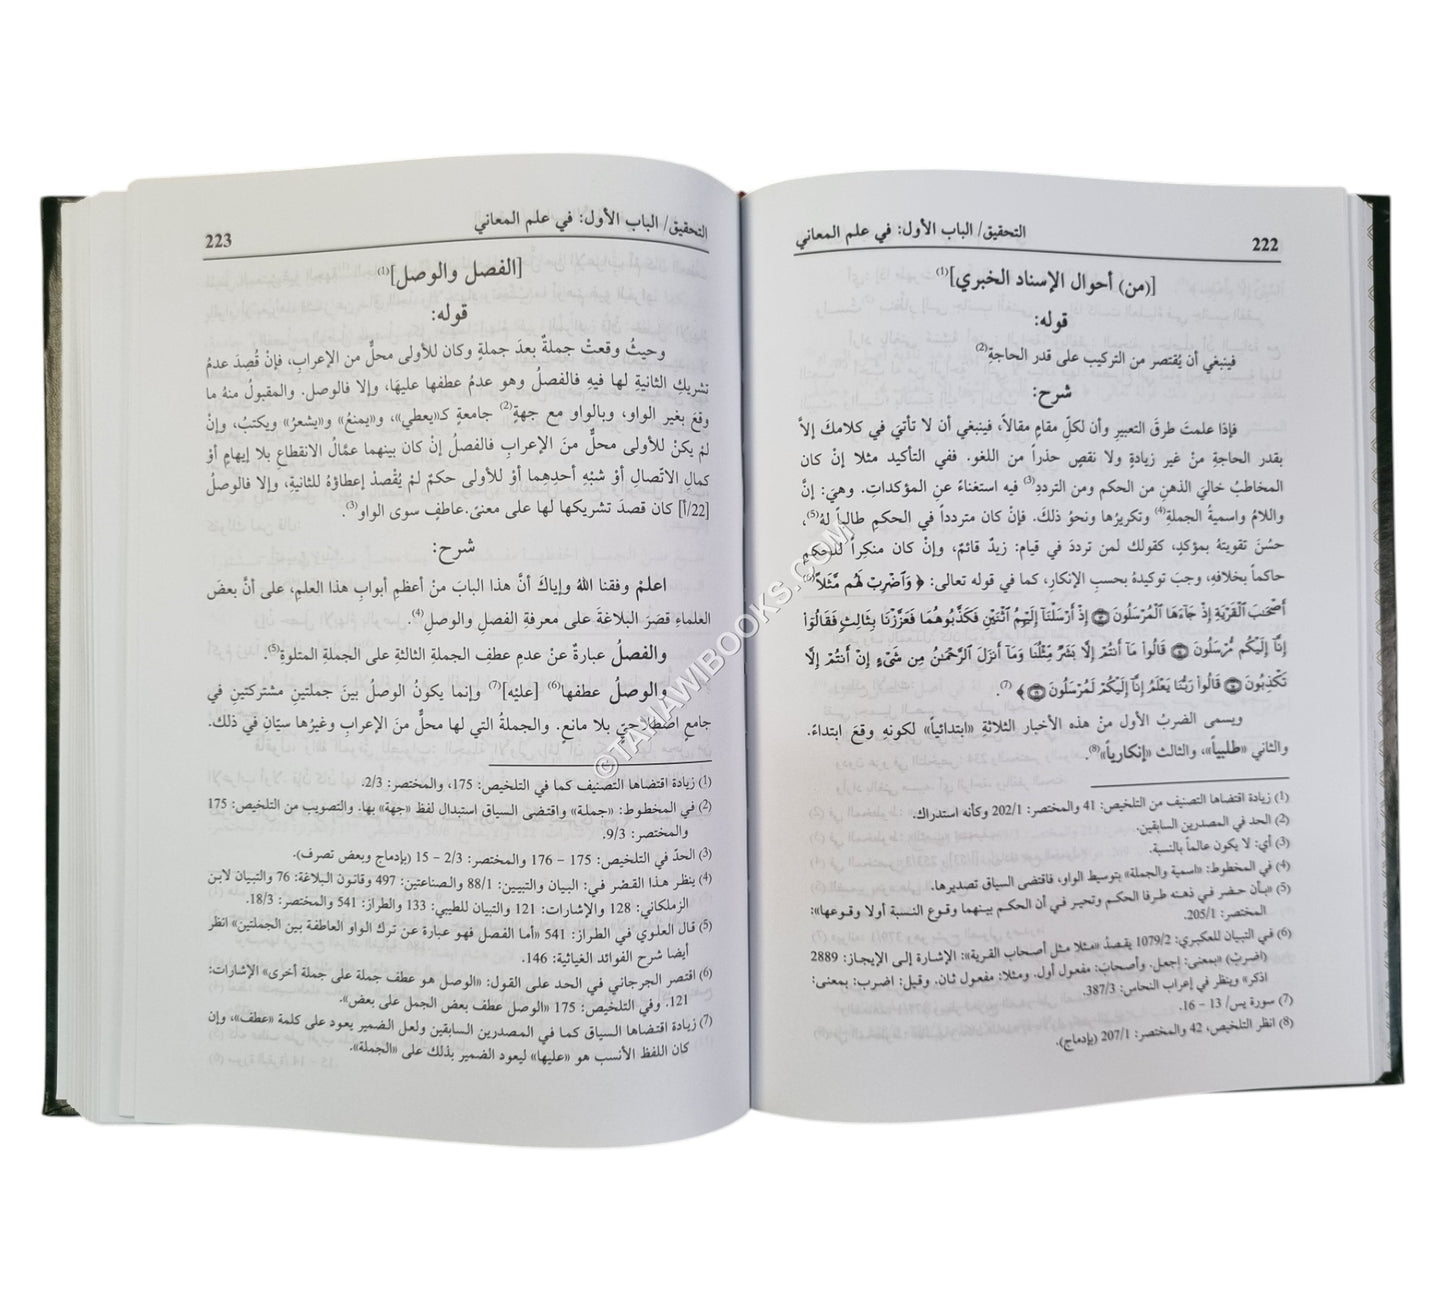 222
التحقيق/ الباب الأول: في علم المعاني
[(من) أحوال الإسناد الخبري](1)
قوله:
فينبغي أن يُقتصر من التركيب على قدر الحاجةِ(2)
شرح:
فإذا علمتَ طرقَ التعبيرِ وأن لكلِّ مقامٍ مقالاً، فينبغي أن لا تأتيَ في كلامكَ إلاَّ
بقدر الحاجةِ منْ غير زيادةٍ ولا نقصٍ حذراً من اللغو. ففي التأكيد مثلا إنْ كان
المخاطبُ خاليَ الذهنِ من الحكم ومن الترددِ(3) فيه استغناءً عنِ المؤكداتِ. وهيَ: إنَّ
واللامُ واسميةُ الجملةِ(4) وتكريرُها ونحوُ ذلكَ. فإنْ كان متردداً في الحكمِ طالباً لهُ(5)،
حسُنَ تقويتهُ بمؤكدٍ، كقولك لمن ترددَ في قيام: زيدٌ قائمٌ، وإنْ كان منكِراً للحكمِ
حاكماً بخلافهِ، وجبَ توكيدهُ بحسبِ الإنكارِ، كما في قوله تعالى: ﴿ وَاضْرِبْ لَهُم مَّثَلاً(6)
أَصْحَابَ الْقَرْيَةِ إِذْ جَاءَهَا الْمُرْسَلُونَ ۝ إِذْ أَرْسَلْنَا إِلَيْهِمُ اثْنَيْنِ فَكَذَّبُوهُمَا فَعَزَّزْنَا بِثَالِثٍ فَقَالُوا
إِنَّا إِلَيْكُم مُّرْسَلُونَ ۝ قَالُوا مَا أَنتُمْ إِلَّا بَشَرٌ مِّثْلُنَا وَمَا أَنزَلَ الرَّحْمَٰنُ مِن شَيْءٍ إِنْ أَنتُمْ إِلَّا
تَكْذِبُونَ ۝ قَالُوا رَبُّنَا يَعْلَمُ إِنَّا إِلَيْكُمْ لَمُرْسَلُونَ ۝ ﴾(7).
ويسمى الضربُ الأول منْ هذه الأخبار الثلاثةِ «ابتدائياً» لكونهِ وقعَ ابتداءً.
والثاني «طلبياً»، والثالث «إنكارياً»(8).
(1) زيادة اقتضاها التصنيف من التلخيص: 41 والمختصر: 202/1 وكأنه استدراك.
(2) الحد في المصدرين السابقين.
(3) أي: لا يكون عالماً بالنسبة.
(4) في المخطوط: «اسمية والجملة» بتوسيط الواو، فاقتضى السياق تصديرها.
(5) «بأن حضر في ذهنه طرفا الحكم وتحير في أن الحكم بينهما وقوع النسبة أولا وقوعها»:
المختصر: 205/1.
(6) في التبيان للعكبري: 1079/2 يقصدُ «مثلا مثل أصحاب القرية»: الإشارة إلى الإيجاز: 2889
(اضرب) «بمعنى: إجعل. وأصحابَ: مفعول أول. ومثلا: مفعول ثان. وقيل: اضرب: بمعنى:
اذكر» وينظر في إعراب النحاس: 387/3.
(7) سورة يس/ 13 – 16.
(8) انظر التلخيص، 42 والمختصر: 207/1 (بإدماج).
التحقيق/ الباب الأول: في علم المعاني
223
[الفصل والوصل](1)
قوله:
وحيثُ وقعتْ جملةٌ بعدَ جملةٍ وكان للأولى محلٌّ من الإعرابِ، فإنْ قُصِدَ عدمُ
تشريكِ الثانيةِ لها فيهِ فالفصلُ وهو عدمُ عطفها عليهَا، وإلا فالوصل. والمقبولُ منهُ ما
وقعَ بغير الواو، وبالواو مع جهةٍ(2) جامعةٍ كـ«يعطي»، و«يمنعُ» و«يشعرُ» ويكتبُ، وإنْ
لمْ يكنْ للأولى محلٌّ منَ الإعرابِ فالفصلُ إنْ كان بينهما عمَّالُ الانقطاعِ بلا إيهامٍ أوْ
كمالِ الاتّصالِ أوْ شبْهِ أحدِهِما أوْ للأولى حكمٌ لمْ يُقْصدْ إعطاؤهُ للثانيةِ، وإلا فالوصلُ
[22/أ] كان قصدَ تشريكها لها على معنىً.عاطفٍ سوى الواو(3).
شرح:
اعلمْ وفقنا اللهُ وإياكَ أنَّ هذا البابَ منْ أعظمِ أبوابِ هذا العلمِ، على أنَّ بعضَ
العلماءِ قصَرَ البلاغةَ على معرفةِ الفصلِ والوصلِ(4).
والفصلُ عبارةٌ عنْ عدمِ عطفِ الجملةِ الثالثةِ على الجملةِ المتلوةِ(5).
والوصلُ عطفها(6) [عليْه](7) وإنما يكونُ الوصلُ بينَ جملتينِ مشتركتينِ في
جامعٍ اصْطلاحيٍّ بلا مانعٍ. والجملةُ التي لها محلٌّ منَ الإعرابِ وغيرُها سيّانِ في ذلك.
(1) زيادة اقتضاها التصنيف كما في التلخيص: 175، والمختصر: 2/3.
(2) في المخطوط: «جملة» واقتضى السياق استبدال لفظ «جهة» بها. والتصويب من التلخيص: 175
والمختصر: 9/3.
(3) الحدّ في التلخيص: 175 – 176 والمختصر: 2/3 – 15 (بإدماج وبعض تصرف).
(4) ينظر هذا القصْر في: البيان والتبيين: 88/1 والصناعتين: 497 وقانون البلاغة: 76 والتبيان لابن
الزملكاني: 128 والإشارات: 121 والتبيان للطيبي: 133 والطراز: 541 والمختصر: 18/3.
(5) قال العلوي في الطراز: 541 «أما الفصل فهو عبارة عن ترك الواو العاطفة بين الجملتين» انظر
أيضا شرح الفوائد الغياثية: 146.
(6) اقتصر الجرجاني في الحد على القول: «الوصل هو عطف جملة على جملة أخرى» الإشارات:
121. وفي التلخيص: 175 «الوصل عطف بعض الجمل على بعض».
(7) زيادة اقتضاها السياق كما في المصدرين السابقين ولعل الضمير يعود على كلمة «عطف»، وإن
كان اللفظ الأنسب هو «عليها» ليعود الضمير بذلك على «الجملة».
©TAHAWIBOOKS.COM